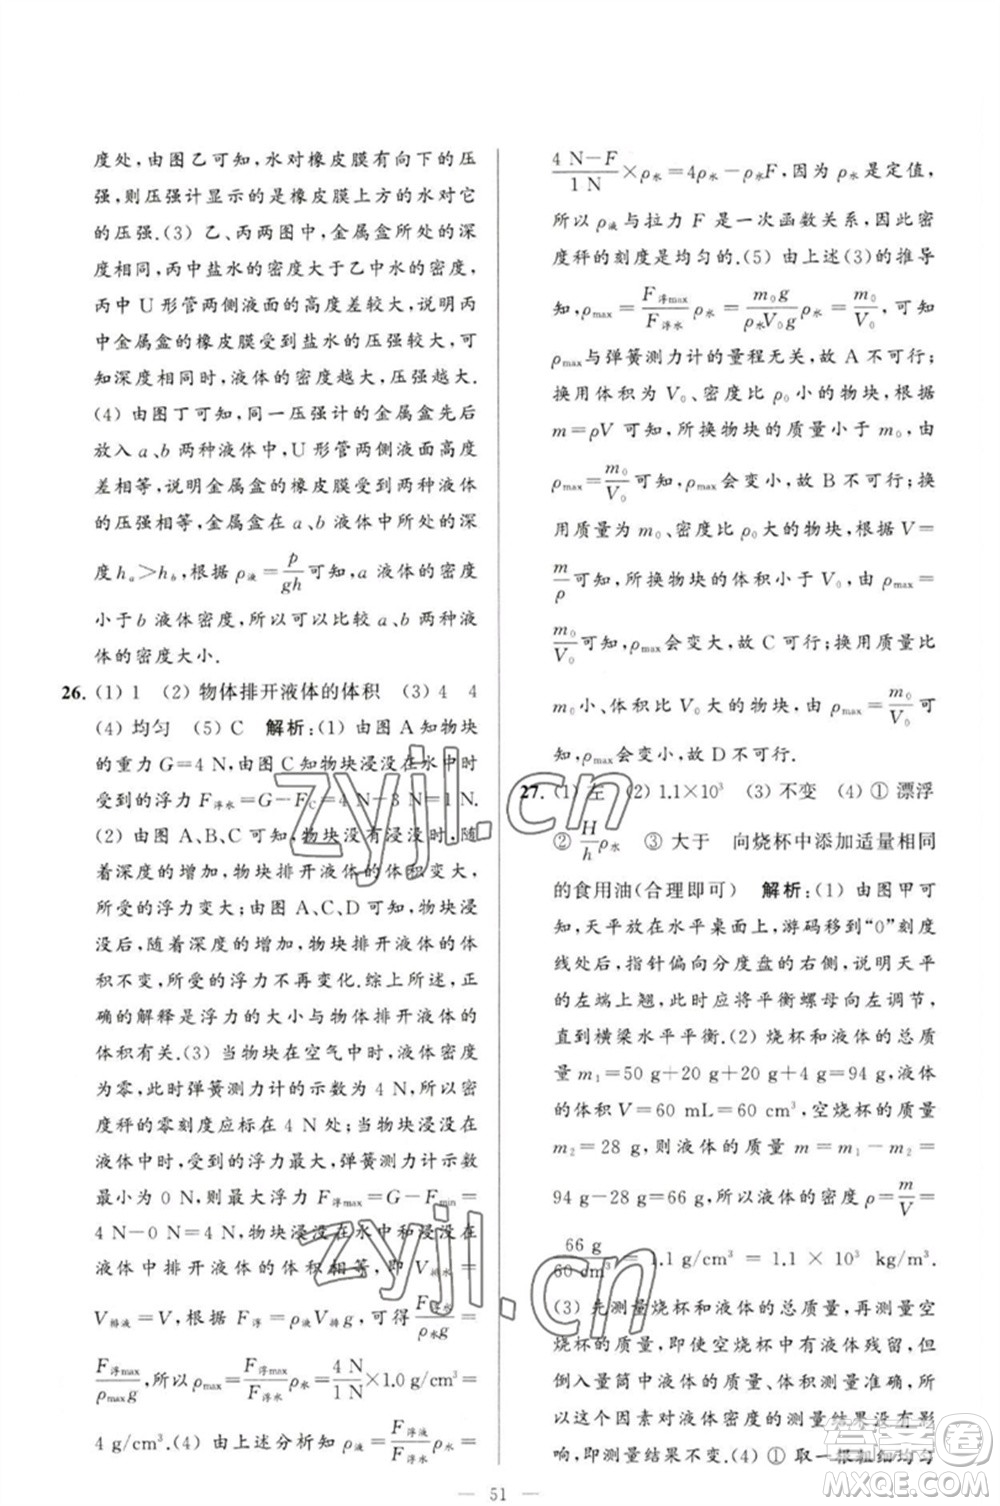 度处,由图乙可知,水对橡皮膜有向下的压
强,则压强计显示的是橡皮膜上方的水对它
的压强.(3) 乙、丙两图中,金属盒所处的深
度相同,丙中盐水的密度大于乙中水的密度,
丙中 U 形管两侧液面的高度差较大,说明丙
中金属盒的橡皮膜受到盐水的压强较大,可
知深度相同时,液体的密度越大,压强越大.
(4) 由图丁可知,同一压强计的金属盒先后
放入 a、b 两种液体中,U 形管两侧液面高度
差相等,说明金属盒的橡皮膜受到两种液体
的压强相等,金属盒在 a、b 液体中所处的深
度 hₐ>h_b,根据 ρ液=p/gh 可知,a 液体的密度
小于 b 液体密度,所以可以比较这两种液
体的密度大小.
26. (1) 1 (2) 物体排开液体的体积 (3) 4 4
(4) 均匀 (5) C 解析:(1) 由图 A 知物块
的重力 G=4 N,由图 C 知物块浸没在水中时
受到的浮力 F浮水=G-F_C=4 N-3 N=1 N.
(2) 由图 A、B、C 可知,物块没有浸没时,随着
深度的增加,物块排开液体的体积变大,
所受的浮力变大;由图 A、C、D 可知,物块浸
没后,随着深度的增加,物块排开液体的体
积不变,所受的浮力不再变化.综上所述,正
确的解释是浮力的大小与物体排开液体的
体积有关.(3) 当物块在空气中时,液体密度
为零,此时弹簧测力计的示数为 4 N,所以该
密度秤的零刻度应标在 4 N 处;当物块浸没在
液体中时,受到的浮力最大,弹簧测力计示数
最小为 0 N,则最大浮力 F浮max=G-Fmin=
4 N-0 N=4 N,物块浸没在水中和浸没在
液体中排开液体的体积相等,即 V排水=
V排液=V,根据 F浮=ρ液V排g,可得 F浮水/ρ水g=
F浮max/ρmax g,所以 ρmax=F浮max/F浮水 ρ水=4 N/1 N×1.0 g/cm³=
4 g/cm³.(4) 由上述分析知 ρ液=F浮液/F浮水 ρ水=
4 N-F/1 N×ρ水=4ρ水-ρ水F,因为 ρ水是定值,
所以 ρ液与拉力 F 是一次函数关系,因此密
度秤的刻度是均匀的.(5) 由上述(3)的推导
知,ρmax=F浮max/F浮水 ρ水=m₀g/ρ水V₀g ρ水=m₀/V₀,可知
ρmax与弹簧测力计的量程无关,故 A 不可行;
换用体积为 V₀、密度比 ρ₀小的物块,根据
m=ρV 可知,所换物块的质量小于 m₀,由
ρmax=m₀/V₀知,ρmax会变小,故 B 不可行;换
用质量为 m₀、密度比 ρ₀大的物块,根据 V=
m/ρ 可知,所换物块的体积小于 V₀,由 ρmax=
m₀/V₀可知,ρmax会变大,故 C 可行;换用质量比
m₀小、体积为 V₀的物块,由 ρmax=m₀/V₀可
知,ρmax会变小,故 D 不可行.
27. (1) 左 (2) 1.1×10³ (3) 不变 (4) ① 漂浮
② H/h ρ水 ③ 大于 向烧杯中添加适量相同
的食用油(合理即可) 解析:(1) 由图甲可
知,天平放在水平桌面上,游码移到“0”刻度
线处后,指针偏向分度盘的右侧,说明天平
的左端上翘,此时应将平衡螺母向左调节,
直到横梁水平平衡.(2) 烧杯和液体的总质
量 m₁=50 g+20 g+20 g+4 g=94 g,液体
的体积 V=60 mL=60 cm³,空烧杯的质量
m₂=28 g,则液体的质量 m=m₁-m₂=
94 g-28 g=66 g,所以液体的密度 ρ=m/V=
66 g/60 cm³=1.1 g/cm³=1.1×10³ kg/m³.
(3) 先测量烧杯和液体的总质量,再测量空
烧杯的质量,即使空烧杯中有液体残留,但
倒入量筒中液体的质量、体积测量准确,所
以这个因素对液体密度的测量结果没有影
响,即测量结果不变.(4) ① 取一根粗细均匀
51
zyjl.cn
zyjl.cn
答案圈
MXQE.COM